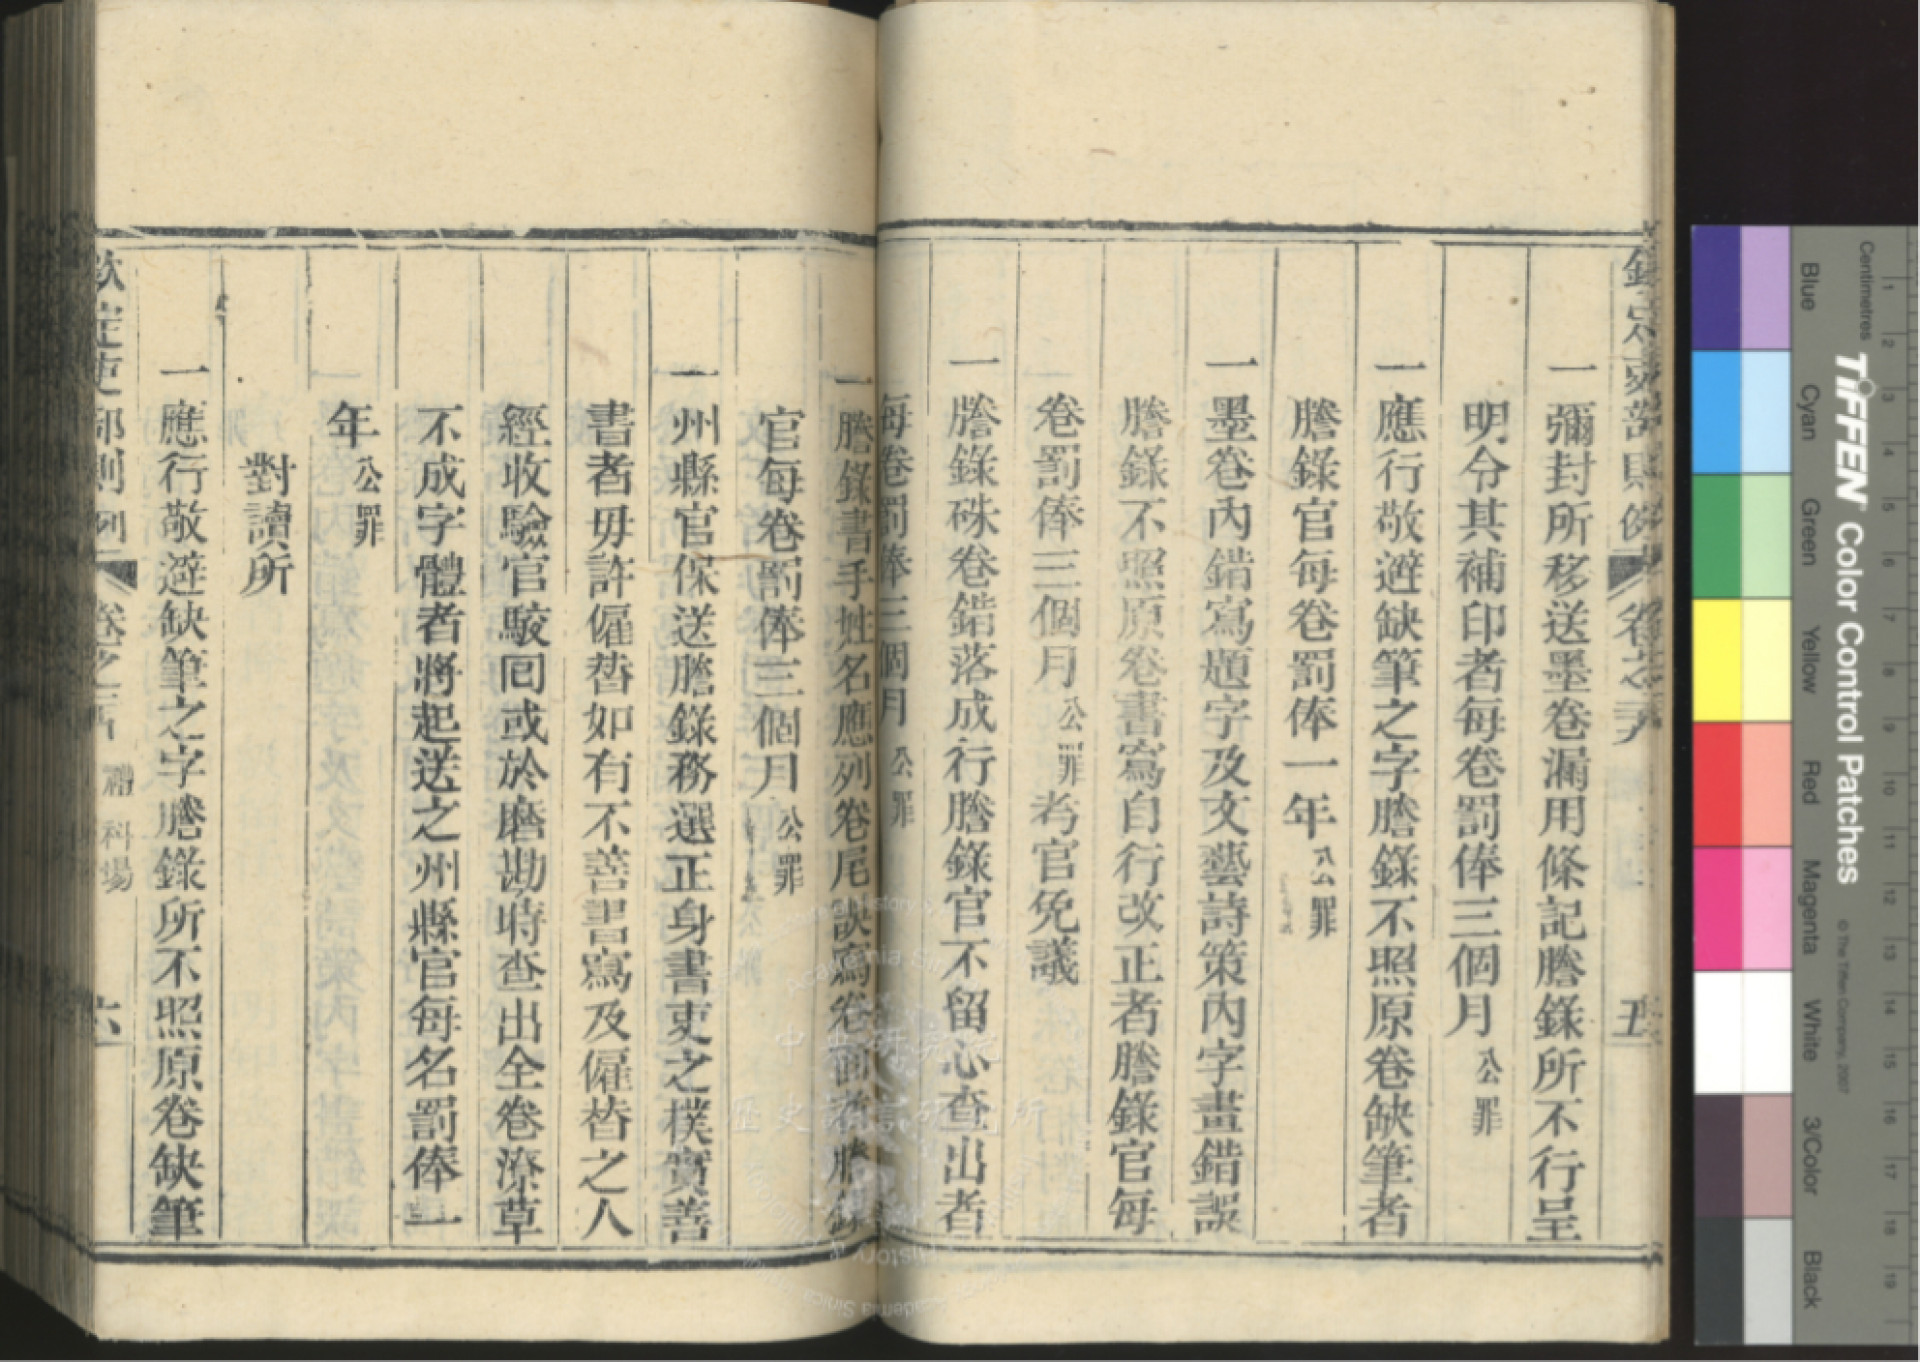 一彌封所移送墨卷漏用條記謄錄所不行呈
明令其補印者每卷罰俸三個月公罪
一應行敬避缺筆之字謄錄不照原卷缺筆者
謄錄官每卷罰俸一年公罪
一墨卷內錯寫題字及文藝詩策內字畫錯誤
謄錄不照原卷書寫自行改正者謄錄官每
卷罰俸三個月公罪考官免議
一謄錄硃卷錯落成行謄錄官不留心查出者
每卷罰俸三個月公罪
一謄錄書手姓名應列卷尾誤寫卷面者謄錄
官每卷罰俸三個月公罪
一州縣官保送謄錄務選正身書吏之樸實善
書者毋許僱替如有不善書寫及僱替之人
經收驗官駁回或於磨勘時查出全卷潦草
不成字體者將起送之州縣官每名罰俸一
年公罪
對讀所
一應行敬避缺筆之字謄錄所不照原卷缺筆
欽定吏部則例 卷之 禮 科場 六
Blue
Cyan
Green
Yellow
Red
Magenta
White
3/Color
Black
Centimetres
TIFFEN Color Control Patches
© The Tiffen Company, 2007
中央研究院
歷史語言研究所